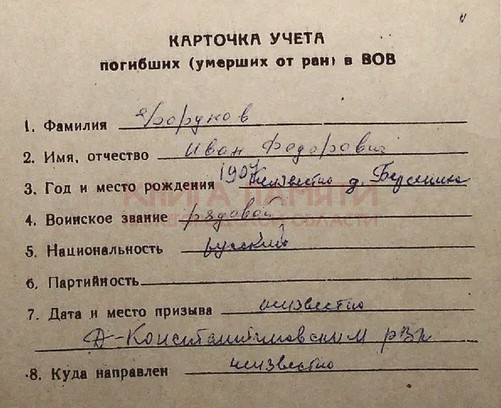 КАРТОЧКА УЧЕТА
погибших (умерших от ран) в ВОВ
1. Фамилия
2. Имя, отчество Иван Федорович
3. Год и место рождения 1907 неизвестно д.
4. Воинское звание рядовой
5. Национальность русский
6. Партийность
7. Дата и место призыва неизвестно
Д-Константиновским РВК
8. Куда направлен неизвестно
КНИГА ПАМЯТИ
НИЖЕГОРОДСКОЙ ОБЛАСТИ